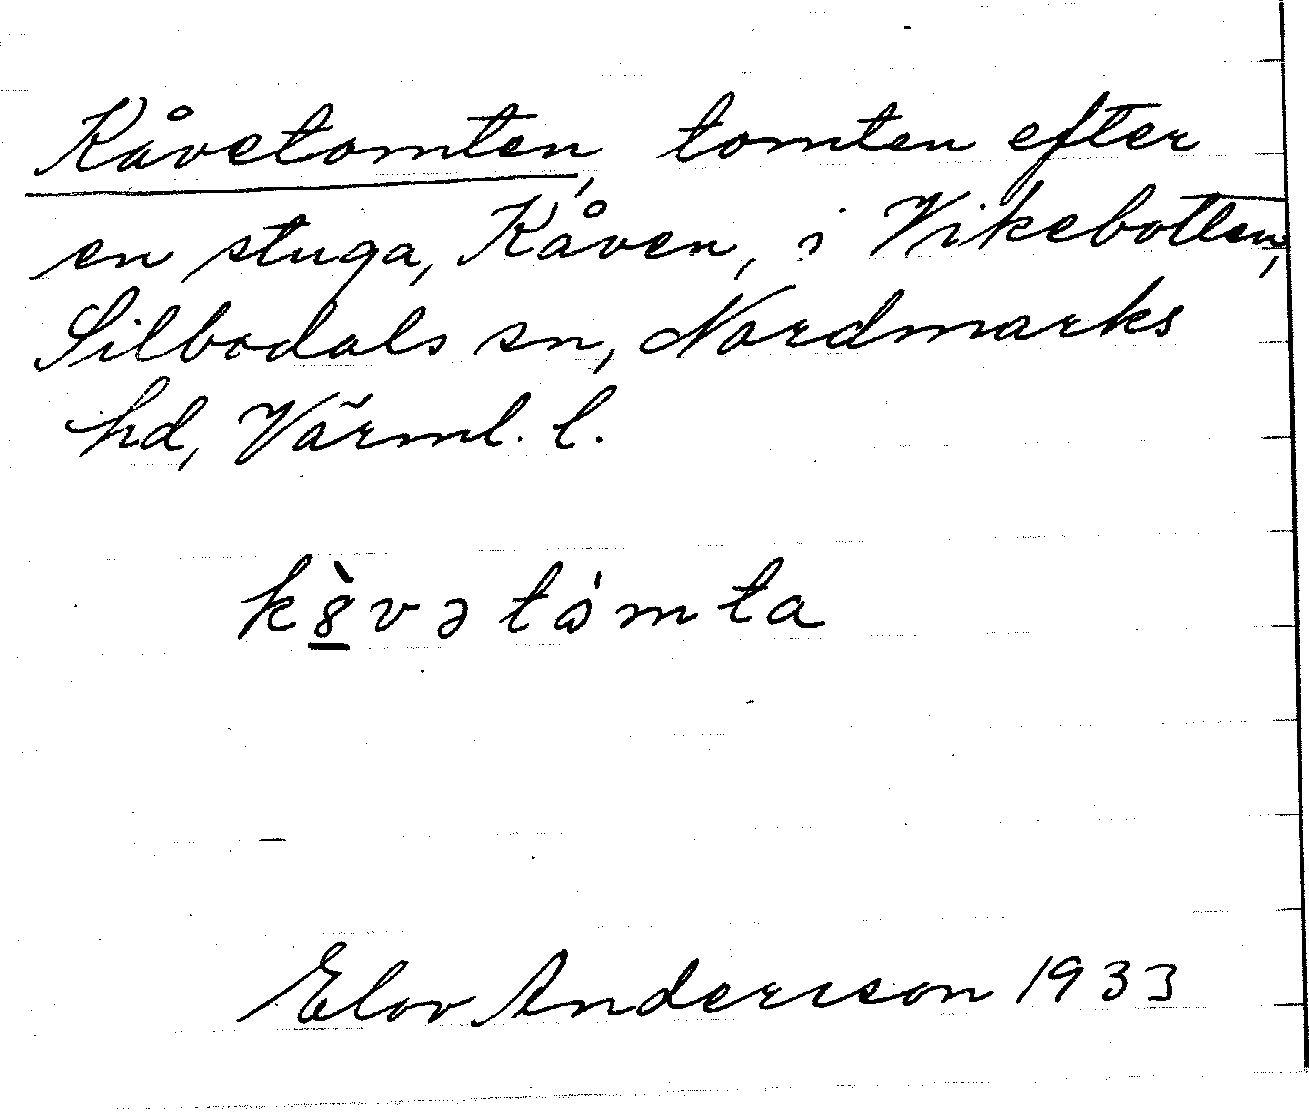 Kåvetomten, tomten efter
en stuga, Kåven, i Vikebotten,
Silbodals sn, Nordmarks
hd, Värml. l.
k8̠̀vətɷ́mta
Elov Andersson 1933